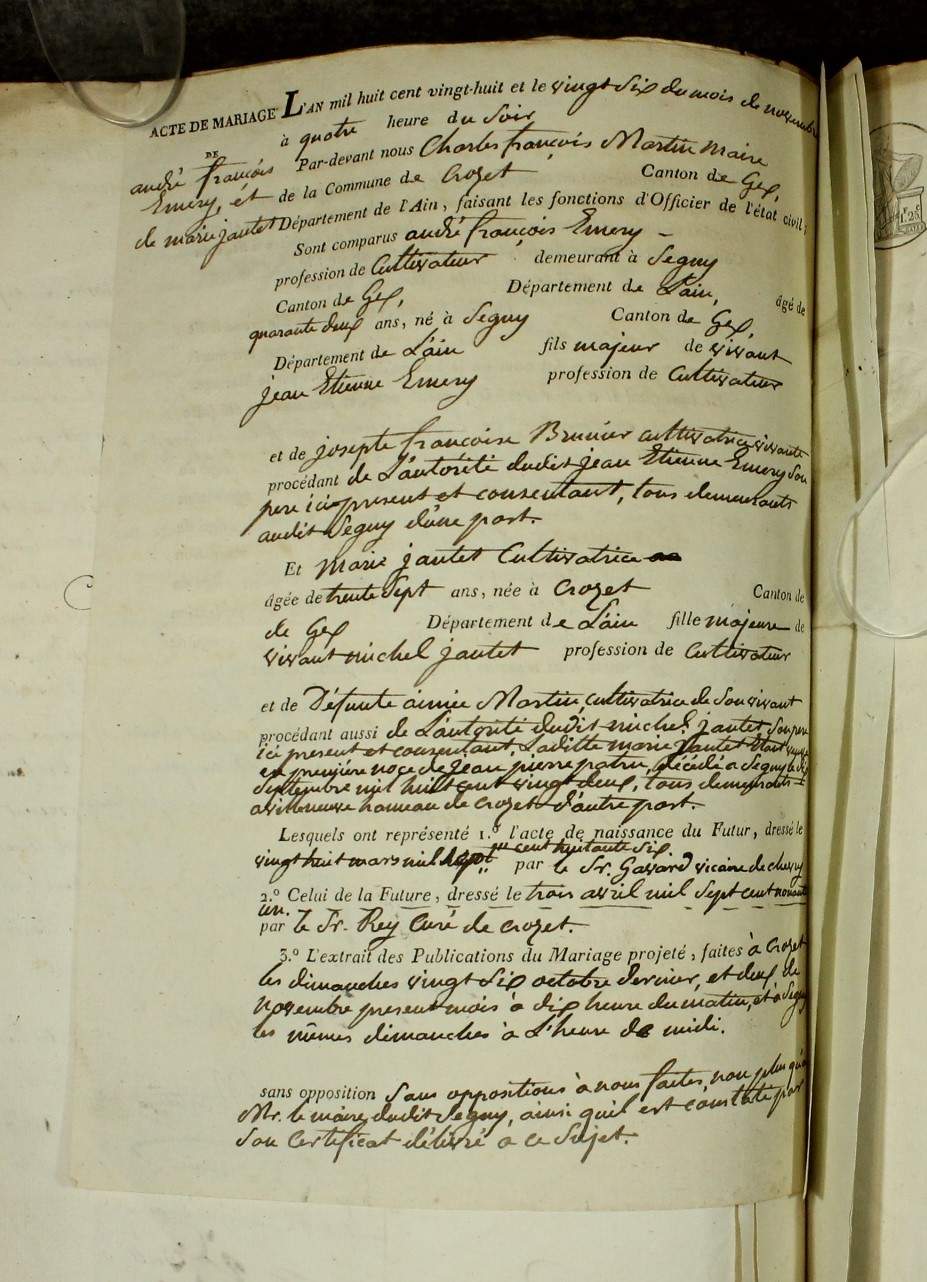 ACTE DE MARIAGE L'AN mil huit cent vingt-huit et le vingt six du mois de novembre
DE à quatre heure du soir
andré françois Par-devant nous Charles françois Martin maire
Emery, et de la Commune de Crozet Canton de Gex,
de marie jantet Département de l'Ain, faisant les fonctions d'Officier de l'état civil;
Sont comparus andré françois Emery
profession de Cultivateur demeurant à Segny
Canton de Gex, Département de L'ain, âgé de
quarante deux ans, né à Segny Canton de Gex,
Département de L'ain fils majeur de vivant
jean Etienne Emery profession de Cultivateur
et de josepte françoise Brunier cultivatrice vivante
procédant de L'autorité dudit jean Etienne Emery son
pere ici présent et consentant, tous demeurants
audit Segny d'une part.
Et marie jantet Cultivatrice
âgée de trente sept ans, née à Crozet Canton de
de Gex Département de L'ain fille majeure de
vivant michel jantet profession de Cultivateur
et de Défunte aimée Martin, cultivatrice de son vivant
procédant aussi de L'autorité dudit michel jantet son pere
ici present et consentant. Laditte marie jantet étant veuve
en première noce de jean pierre patru, décédé a Segny le dix
Septembre mil huit cent vingt deux, tous demeurants
a villeneuve hameau de Crozet d'autre part.
Lesquels ont représenté 1.º l'acte de naissance du Futur, dressé le
cent huitante six
vingt huit mars mil sept par le Sr. Gavard vicaire de chevry
2.º Celui de la Future, dressé le trois avril mil sept cent nonante
un.
par le Sr. Rey Curé de Crozet.
3.º L'extrait des Publications du Mariage projeté, faites à Crozet
les dimanches vingt six octobre dernier, et deux de
novembre present mois à dix heure du matin, et à Segny
les mêmes dimanches à L'heure de midi.
sans opposition sans oppositions à nous faites, non plus qu'à
Mr. le maire dudit Segny, ainsi quil est constaté par
son Certificat délivré a ce sujet.
1.F 25.C